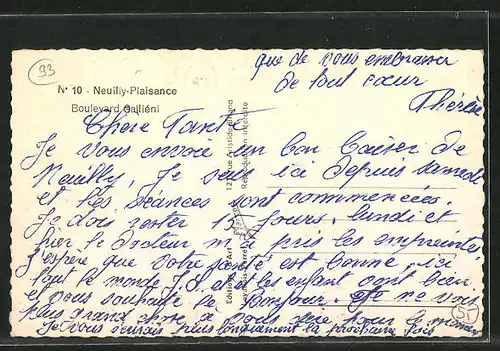 93
N° 10 - Neuilly-Plaisance
Boulevard Galliéni
que de vous embrasser
de tout cœur
Thérèse
Chere Tante
Je vous envoie un bon baiser de
Neuilly, je suis ici depuis samedi
et les séances sont commencées.
Je dois rester 15 jours. lundi et
hier le docteur m'a pris les empreintes
J'espère que votre santé est bonne, ici
tout le monde et les enfant vont bien
et vous souhaite le bonjour. Je ne vois
plus grand chose à vous dire pour le moment
Je vous écrirais plus longuement la prochaine fois
Reproduction interdite